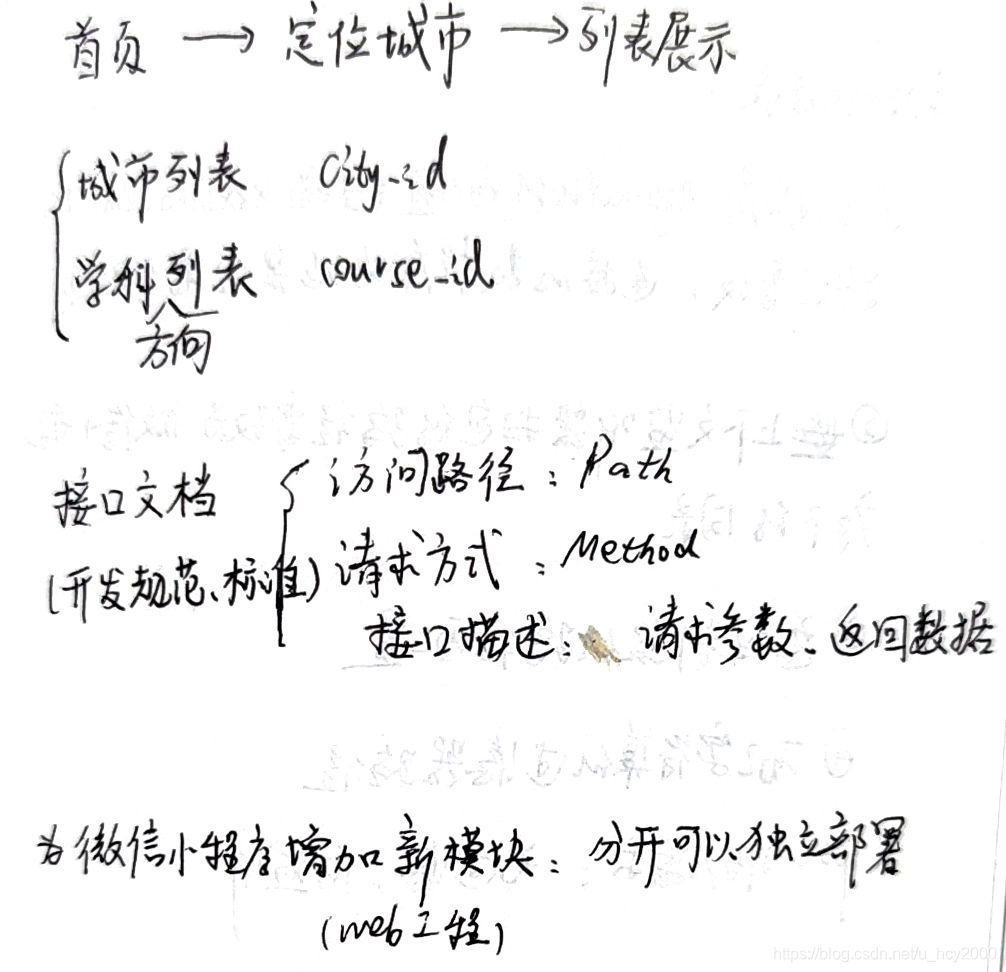 首页 → 定位城市 → 列表展示
城市列表 City_id
学科列表 course_id
方向
接口文档
(开发规范、标准)
访问路径：Path
请求方式：Method
接口描述：请求参数、返回数据
为微信小程序增加新模块：分开可以独立部署
(web工程)
https://blog.csdn.net/u_hcy2000